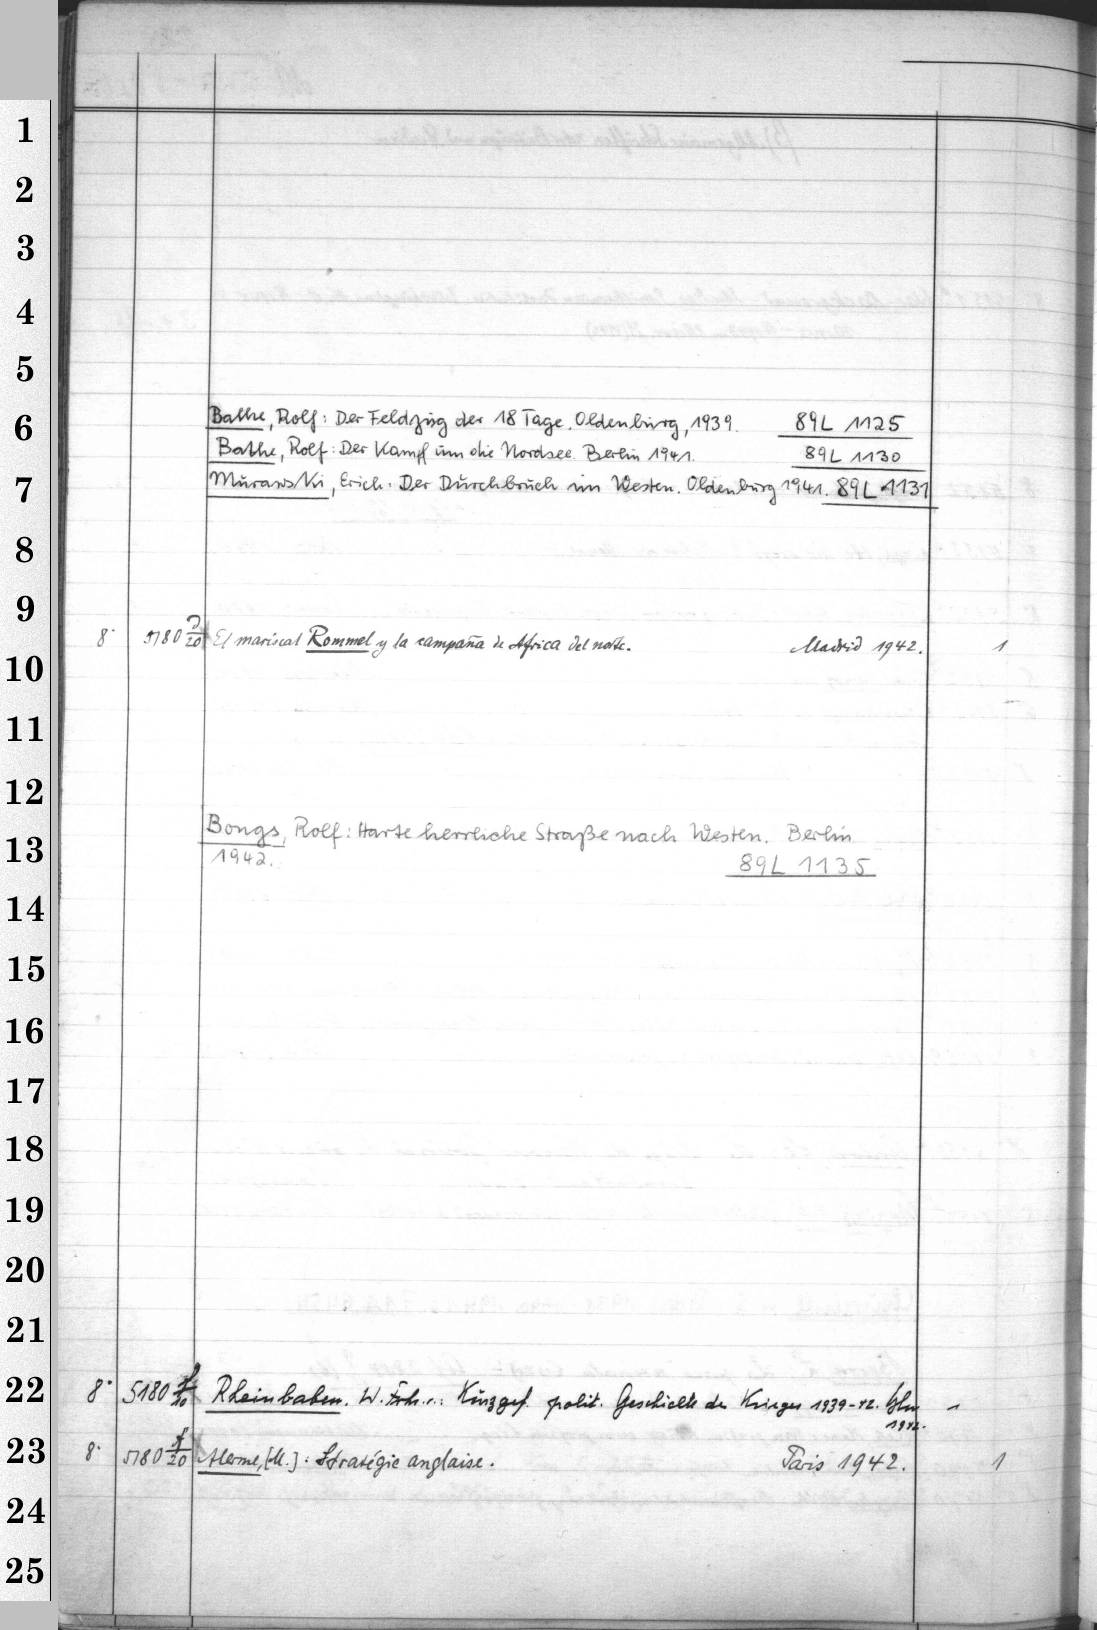 1
2
3
4
5
6
Bathe, Rolf: Der Feldzug der 18 Tage. Oldenburg, 1939. 89L 1125
Bathe, Rolf: Der Kampf um die Nordsee. Berlin 1941. 89L 1130
7
Murawski, Erich: Der Durchbruch im Westen. Oldenburg 1941. 89L 1131
8
9
8° 5180 20 El mariscal Rommel y la campaña de Africa del norte. Madrid 1942. 1
10
11
12
Bongs, Rolf: Harte herrliche Straße nach Westen. Berlin
13
1942. 89L 1135
14
15
16
17
18
19
20
21
22
8° 5180 20 Rheinbaben, W. Frh. v.: Kurzgef. polit. Geschichte des Krieges 1939-42. Bln
1942.
23
8° 5180 f/20 Alerme, [M.]: Stratégie anglaise. Paris 1942. 1
24
25